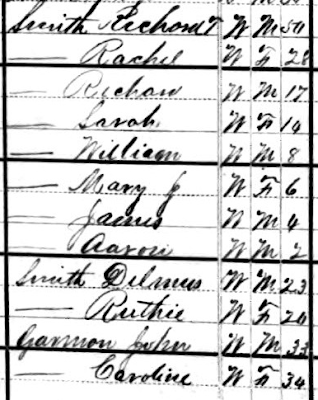 Smith Richard T W M 50
— Rachel W F 28
— Richard W M 17
— Sarah W F 14
— William W M 8
— Mary J W F 6
— James W M 4
— Aaron W M 2
Smith Delmus W M 23
— Ruthie W F 20
Garmon John W M 33
— Caroline W F 34